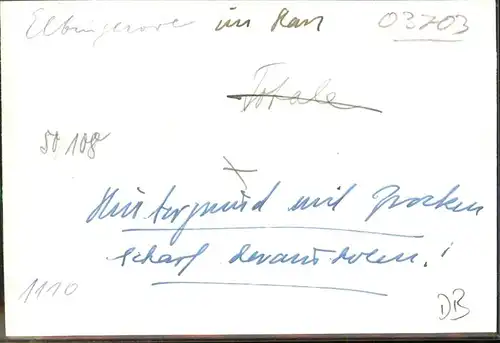 Elbingerode im Harz 03703
Totale
50 108
Hintergrund mit Brocken
scharf herausholen!
1110
DB